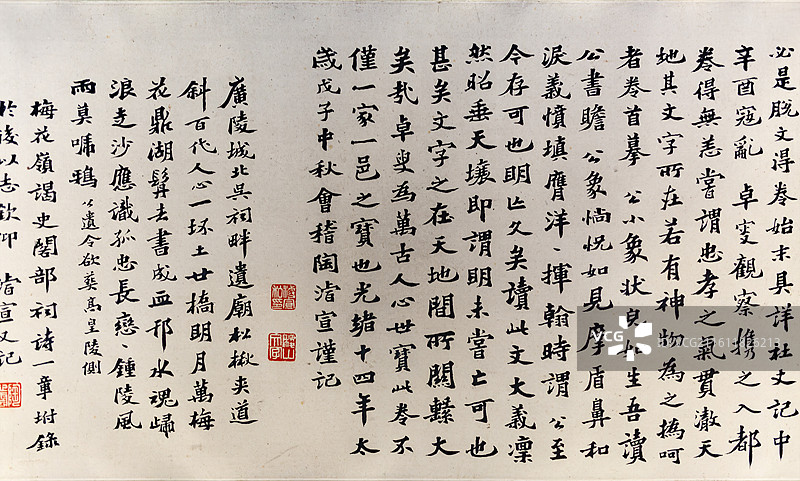 必是脱文得卷始末具詳杜丈記中
辛酉寇亂 卓叟觀察携之入都
卷得無恙嘗謂忠孝之氣貫澈天
地其文字所在若有神物為之撝呵
者卷首摹 公小象狀皃如生吾讀
公書瞻 公象惝怳如見摩盾鼻和
淚義憤填膺洋洋揮翰時謂 公至
今存可也明亡久矣讀此文大義凜
然昭垂天壤即謂明未嘗亡可也
甚矣文字之在天地間所關繫大
矣哉卓叟為萬古人心世寶此卷不
僅一家一邑之寶也光緒十四年太
歲戊子中秋會稽陶濬宣謹記
廣陵城北吳祠畔遺廟松楸夾道
斜百代人心一抔土廿橋明月萬梅
花鼎湖髯去書成血邗水魂歸
浪走沙應識孤忠長戀戀鍾陵風
雨莫嗁鴉 公遺令欲葬高皇陵側
梅花嶺謁史閣部祠詩一章坿錄
於後以志欽仰 濬宣又記
VCG